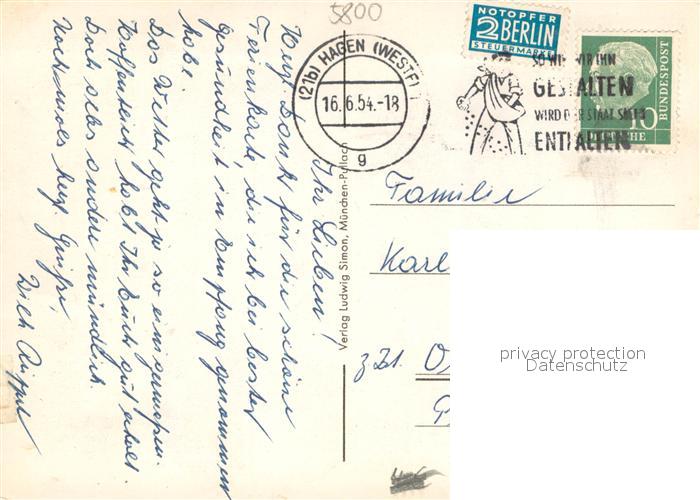 5800
NOTOPFER
2 BERLIN
STEUERMARKE
(21b) HAGEN (WESTF)
16.6.54.-18
g
SO WIE WIR IHN
GESTALTEN
WIRD DER STAAT SICH
ENTFALTEN
10
DEUTSCHE
BUNDESPOST
Ihr Lieben!
Herzl. Dank für die schöne
Ferienkarte die ich bei bester
Gesundheit in Empfang genommen
habe.
Das Wetter geht ja so einigermaßen.
Hoffentlich habt Ihr Euch gut erholt.
Das andere mündlich.
Nochmals herzl. Grüße!
Verlag Ludwig Simon, München-Pullach
Familie
Karl
z. Zt.
privacy protection
Datenschutz